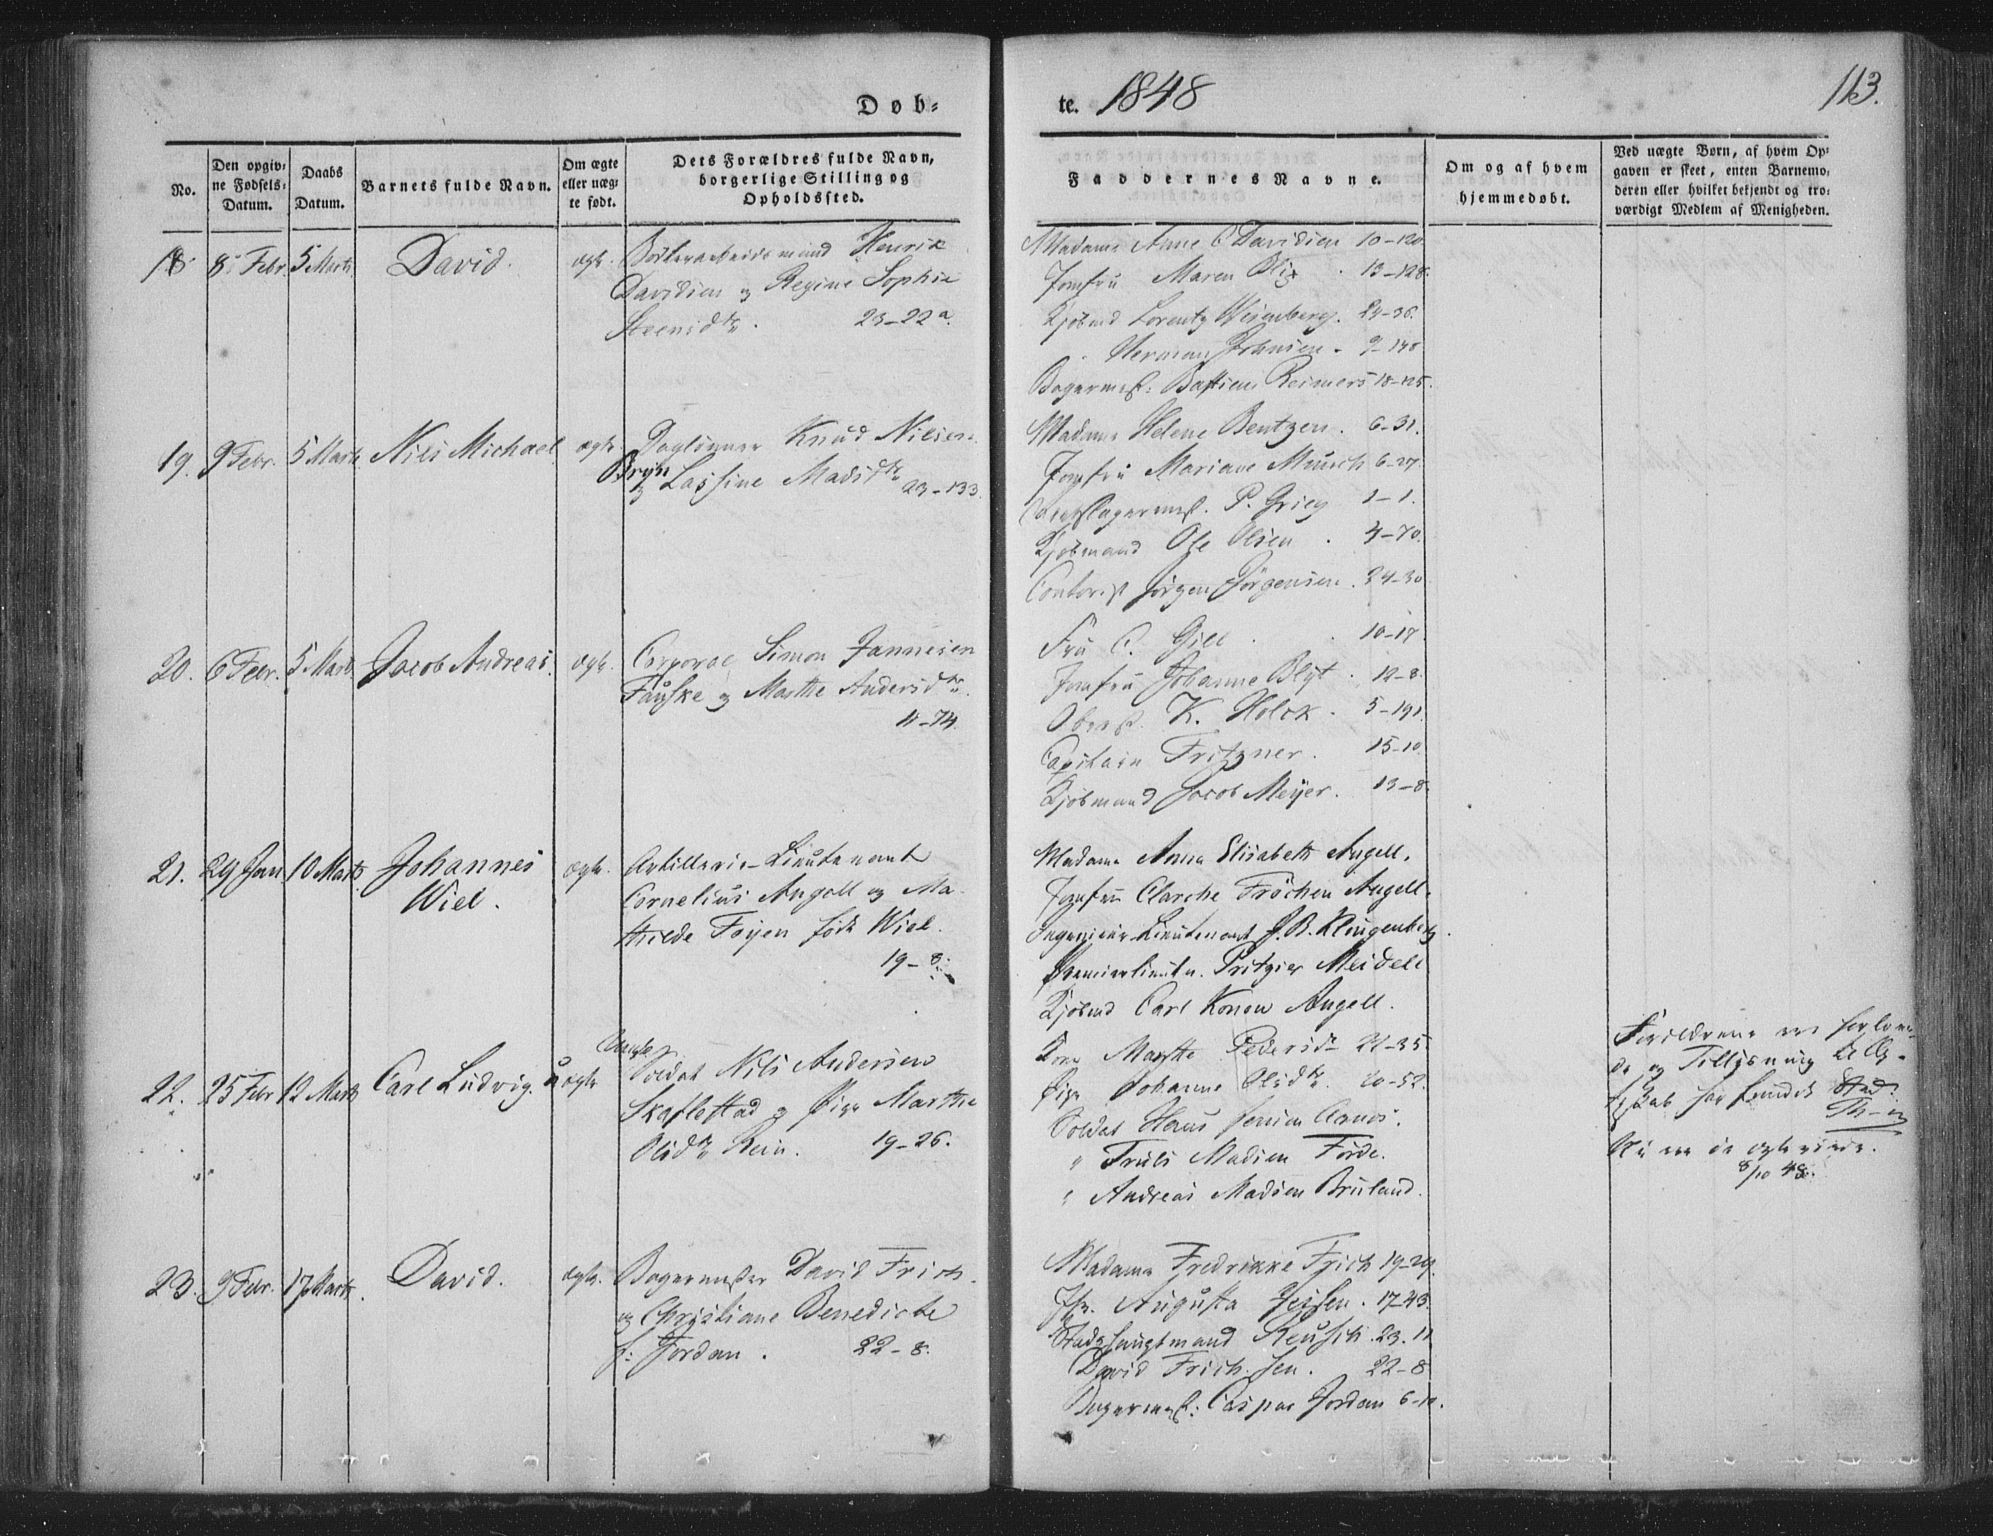 Døb=
te. 1848
113.
No.
Den opgiv=
ne Fødsels=
Datum.
Daabs
Datum.
Barnets fulde Navn.
Om ægte
eller uæg=
te født.
Dets Forældres fulde Navn,
borgerlige Stilling og
Opholdssted.
Faddernes Navne.
Om og af hvem
hjemmedøbt.
Ved uægte Børn, af hvem Op=
gaven er skeet, enten Barnemo=
deren eller hvilket bekjendt og tro=
værdigt Medlem af Menigheden.
18. 8 Febr. 5 Marts David. ægte.
Henrik
Davidsen og Regine Sophie
23-22a.
Madame Anne C Davidsen 10-120
Jomfru Maren Blix 13-128.
Kjøbmd Lorentz Wesenberg. 24-36.
Herman Johnsen. 9-140
Bagermest: Bastian Reimers 18-125.
19. 9 Febr. 5 Marts Nils Michael ægte
Daglønner Knud Nilsen
og Lassine Madsdtr 23-133.
Madame Helene Bentzen. 6-31.
Jomfru Mariane Munch 6-27.
P. Grieg 1-1.
Kjøbmand Ole Olsen. 4-70.
Contorist Jørgen Jørgensen. 24-30
20. 6 Febr. 5 Marts Jacob Andreas. ægte.
Corporal Simon Jannesen
Fauske og Marthe Andersdtr.
11-74.
Fru C. Gill 10-17
Jomfru Johanne Blyt. 12-8.
Oberst K. Holck. 5-191.
Capitain Fritzner. 15-10.
Kjøbmand Jacob Meyer. 13-8.
21. 29 Jan 10 Marts Johannes
Wiel. ægte.
Artillerie-Lieutenant
Cornelius Angell og Ma-
thilde Foyen født Wiel.
19-8.
Madame Anna Elisabeth Angell.
Jomfru Clarche Frøchen Angell.
Ingenieur-Lieutenant J. B. Klingenberg
Premierlieutn. Pritzier Meidell
Kjøbmd Carl Konow Angell.
22. 25 Febr 12 Marts Carl Ludvig. uægte
Soldat Nils Andersen
Skaflestad og Pige Marthe
Olsdtr Rein. 19-26.
Kone Marthe Pedersdr 21-35.
Pige Johanne Olsdtr. 20-52.
Soldat Hans Jensen
" Truls Madsen Førde.
" Andreas Madsen Bruland.
Forældrene ere forlove-
de og Tillysning til Æg-
teskab har fundet Sted.
Nu ere de ægteviede.
8/10 48.
23. 9 Febr. 17 Marts. David. ægte.
Bagermester David Frich
og Christiane Benedicte
f: Jordan. 22-8.
Madame Fredrikke Frich 19-29.
Jfr. Augusta Jessen. 17-43.
Stadshauptmand Reusch. 23. 11
David Frich sen. 22-8
Bagermest: Caspar Jordan 6-10.